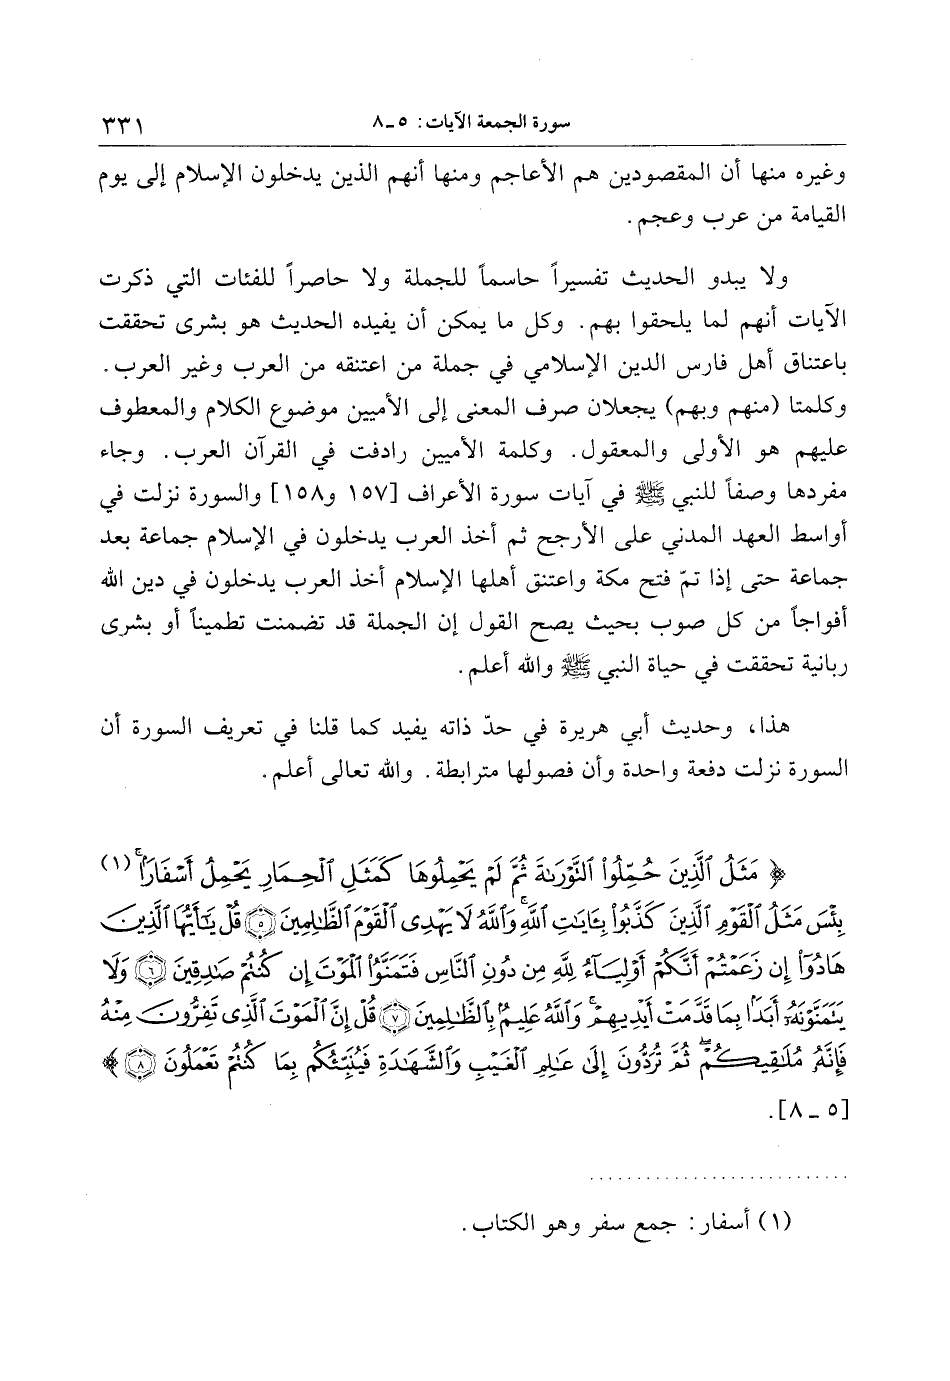 سورة الجمعة الآيات: ٥ ـ ٨ ٣٣١
وغيره منها أن المقصودين هم الأعاجم ومنها أنهم الذين يدخلون الإسلام إلى يوم
القيامة من عرب وعجم.
ولا يبدو الحديث تفسيراً حاسماً للجملة ولا حاصراً للفئات التي ذكرت
الآيات أنهم لما يلحقوا بهم. وكل ما يمكن أن يفيده الحديث هو بشرى تحققت
باعتناق أهل فارس الدين الإسلامي في جملة من اعتنقه من العرب وغير العرب.
وكلمتا (منهم وبهم) يجعلان صرف المعنى إلى الأميين موضوع الكلام والمعطوف
عليهم هو الأولى والمعقول. وكلمة الأميين رادفت في القرآن العرب. وجاء
مفردها وصفاً للنبي ﷺ في آيات سورة الأعراف [١٥٧ و١٥٨] والسورة نزلت في
أواسط العهد المدني على الأرجح ثم أخذ العرب يدخلون في الإسلام جماعة بعد
جماعة حتى إذا تمّ فتح مكة واعتنق أهلها الإسلام أخذ العرب يدخلون في دين الله
أفواجاً من كل صوب بحيث يصح القول إن الجملة قد تضمنت تطميناً أو بشرى
ربانية تحققت في حياة النبي ﷺ والله أعلم.
هذا، وحديث أبي هريرة في حدّ ذاته يفيد كما قلنا في تعريف السورة أن
السورة نزلت دفعة واحدة وأن فصولها مترابطة. والله تعالى أعلم.
﴿ مَثَلُ ٱلَّذِينَ حُمِّلُوا۟ ٱلتَّوْرَىٰةَ ثُمَّ لَمْ يَحْمِلُوهَا كَمَثَلِ ٱلْحِمَارِ يَحْمِلُ أَسْفَارًۢا ۚ (١)
بِئْسَ مَثَلُ ٱلْقَوْمِ ٱلَّذِينَ كَذَّبُوا۟ بِـَٔايَـٰتِ ٱللَّهِ ۚ وَٱللَّهُ لَا يَهْدِى ٱلْقَوْمَ ٱلظَّـٰلِمِينَ ٥ قُلْ يَـٰٓأَيُّهَا ٱلَّذِينَ
هَادُوٓا۟ إِن زَعَمْتُمْ أَنَّكُمْ أَوْلِيَآءُ لِلَّهِ مِن دُونِ ٱلنَّاسِ فَتَمَنَّوُا۟ ٱلْمَوْتَ إِن كُنتُمْ صَـٰدِقِينَ ٦ وَلَا
يَتَمَنَّوْنَهُۥٓ أَبَدًۢا بِمَا قَدَّمَتْ أَيْدِيهِمْ ۚ وَٱللَّهُ عَلِيمٌۢ بِٱلظَّـٰلِمِينَ ٧ قُلْ إِنَّ ٱلْمَوْتَ ٱلَّذِى تَفِرُّونَ مِنْهُ
فَإِنَّهُۥ مُلَـٰقِيكُمْ ۖ ثُمَّ تُرَدُّونَ إِلَىٰ عَـٰلِمِ ٱلْغَيْبِ وَٱلشَّهَـٰدَةِ فَيُنَبِّئُكُم بِمَا كُنتُمْ تَعْمَلُونَ ٨ ﴾
[٥ ـ ٨].
(١) أسفار: جمع سفر وهو الكتاب.